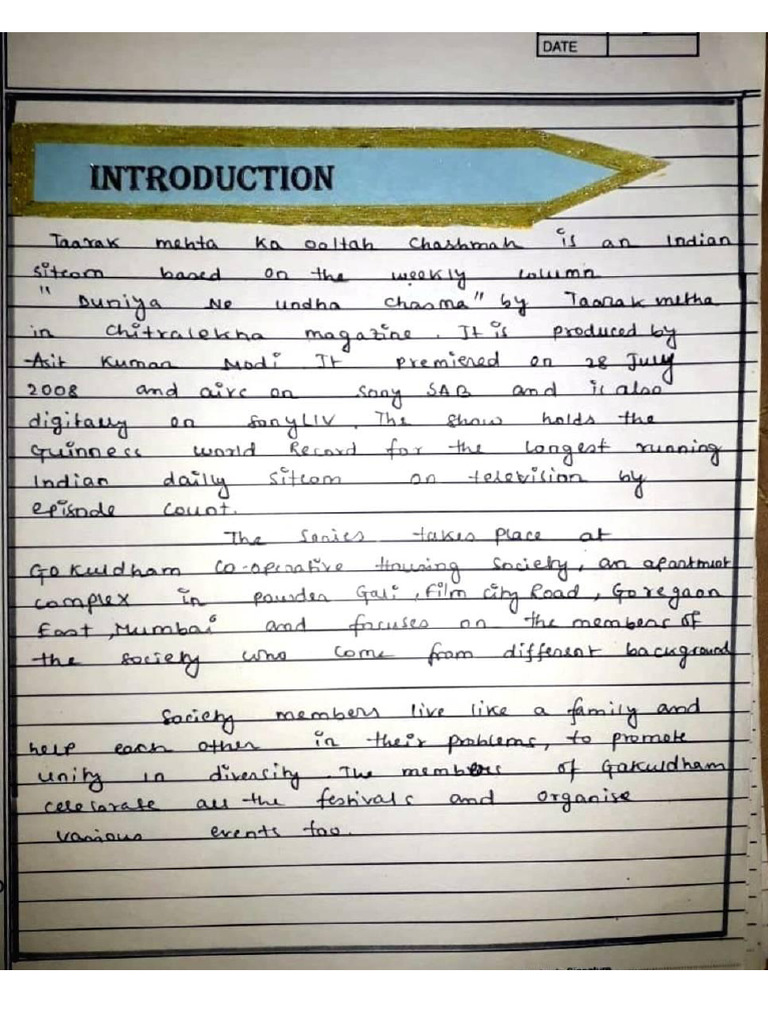 DATE
INTRODUCTION
Taarak mehta ka ooltah chashmah is an Indian
sitcom based on the weekly column
" Duniya Ne undha chasma" by Taarak metha
in chitralekha magazine. It is produced by
Asit Kumar Modi It premiered on 28 July
2008 and airs on Sony SAB and is also
digitally on SonyLIV. The show holds the
Guinness world Record for the longest running
Indian daily sitcom on television by
episode count.
The series takes place at
Gokuldham co-operative Housing Society, an apartment
complex in powder Gali, Film city Road, Goregaon
East, Mumbai and focuses on the members of
the society who come from different background
Society members live like a family and
help each other in their problems, to promote
unity in diversity. The members of Gokuldham
celebrate all the festivals and organise
various events too.